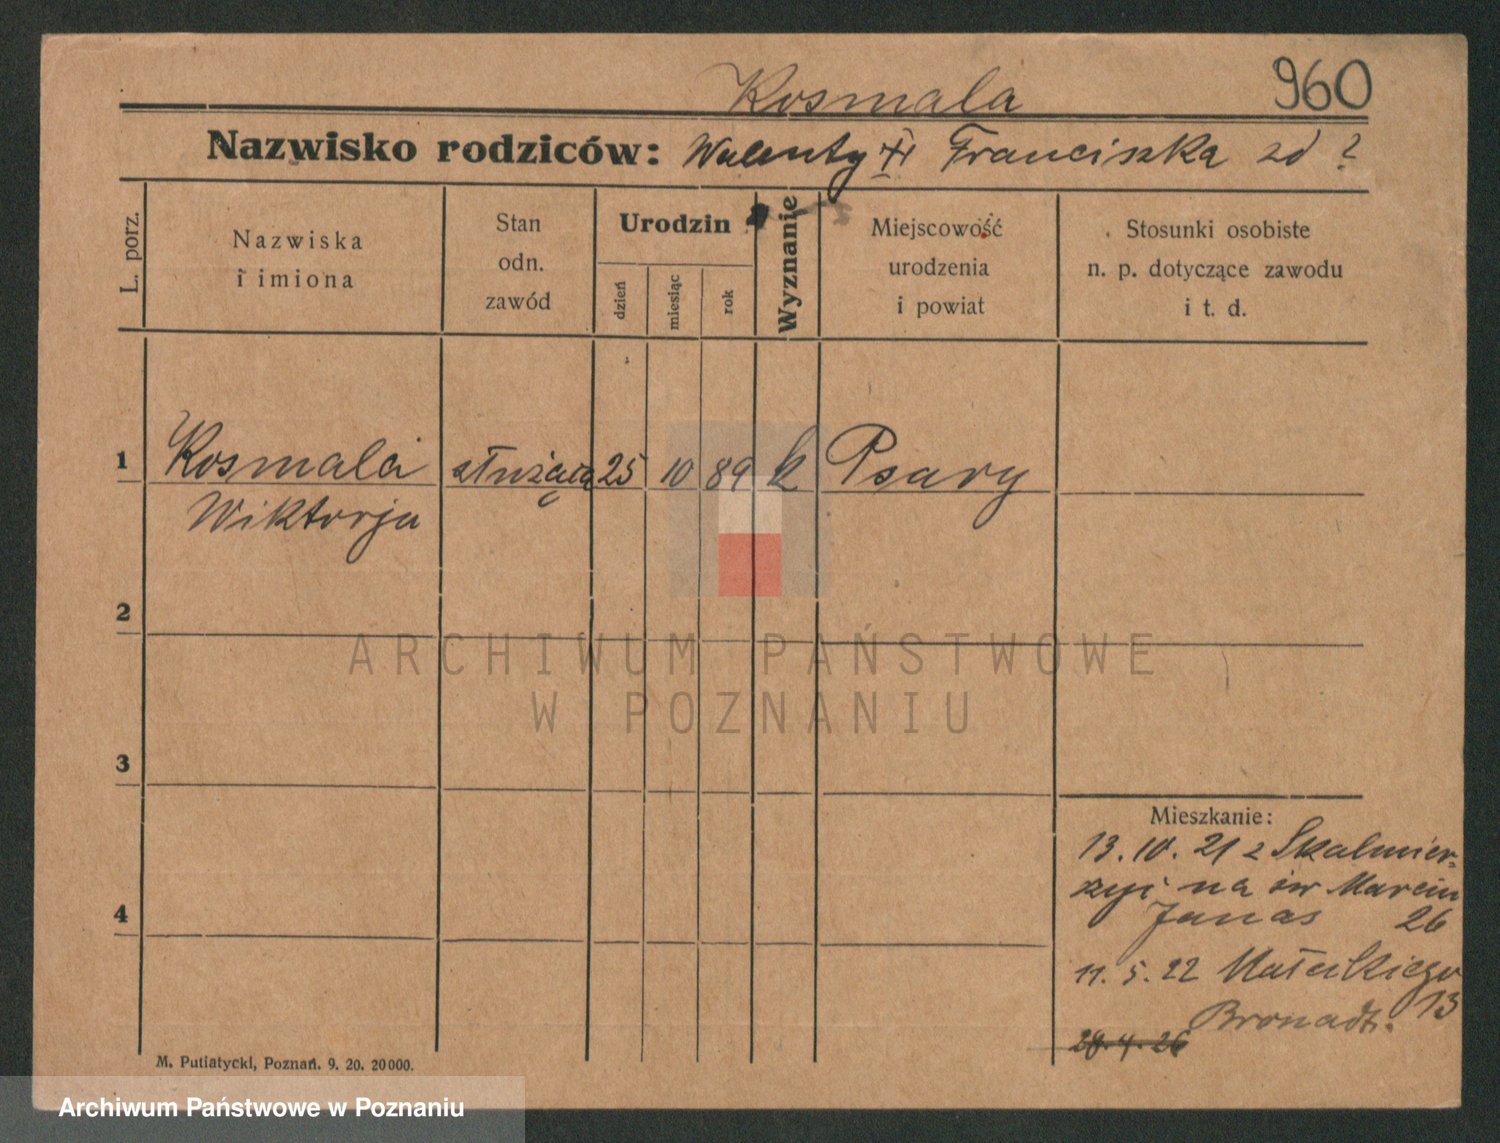 Kosmala 960
Nazwisko rodziców: Walenty Franciszka zd ?
L. porz.
Nazwiska
i imiona
Stan
odn.
zawód
Urodzin
dzień
miesiąc
rok
Wyznanie
Miejscowość
urodzenia
i powiat
Stosunki osobiste
n. p. dotyczące zawodu
i t. d.
1 Kosmala służąca 25 10 89 k Psary
Wiktorja
2
3
4
Mieszkanie:
13.10.21 z Skalmier-
zyc na św Marcin
Janas 26
11.5.22 Małeckiego
13
28.4.26
M. Putiatycki, Poznań. 9. 20. 20000.
ARCHIWUM PAŃSTWOWE
W POZNANIU
Archiwum Państwowe w Poznaniu